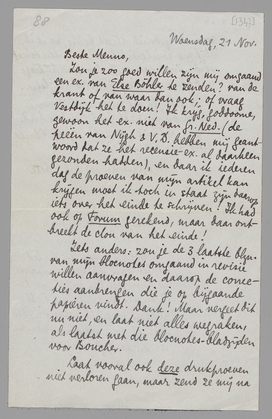 88
[1341]
Woensdag, 21 Nov.
Beste Menno,
Zou je zoo goed willen zijn mij omgaand
een ex. van Else Böhler te zenden? van de
krant of van waar dan ook; of vraag
Vestdijk het te doen! Ik krijg, goddoome,
gewoon het ex. niet van Gr. Ned. (de
van Nijgh & V. D. hebben mij geant-
woord dat ze het recensie-ex. al daarheen
gezonden hadden), en daar ik iederen
dag de proeven van mijn artikel kan
krijgen moet ik toch in staat zijn daarop
iets over het einde te schrijven! Ik had
ook op Forum gerekend, maar daar ont-
breekt de clou van het einde!
Iets anders: zou je de 3 laatste blzn.
van mijn blocnotes omgaand in revisie
willen aanvragen en daarop de correc-
ties aanbrengen die je op bijgaande
papieren vindt. Dank! Maar vergeet dit
nu niet, en laat niet alles wegraken,
als laatst met die blocnotes-bladzijden
voor Boucher.
Laat vooral ook deze drukproeven
niet verloren gaan, maar zend ze mij na